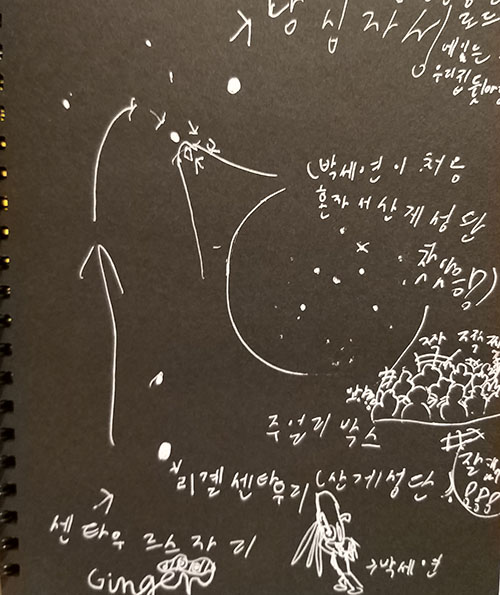 남십자성
네임은
우리집
(박세연이 처음
혼자서 산개성단
찾았음!)
짝 짝짝
주얼리 박스
*리겔센타우리 (산개성단)
센타우르스자리
→박세연
Ginger